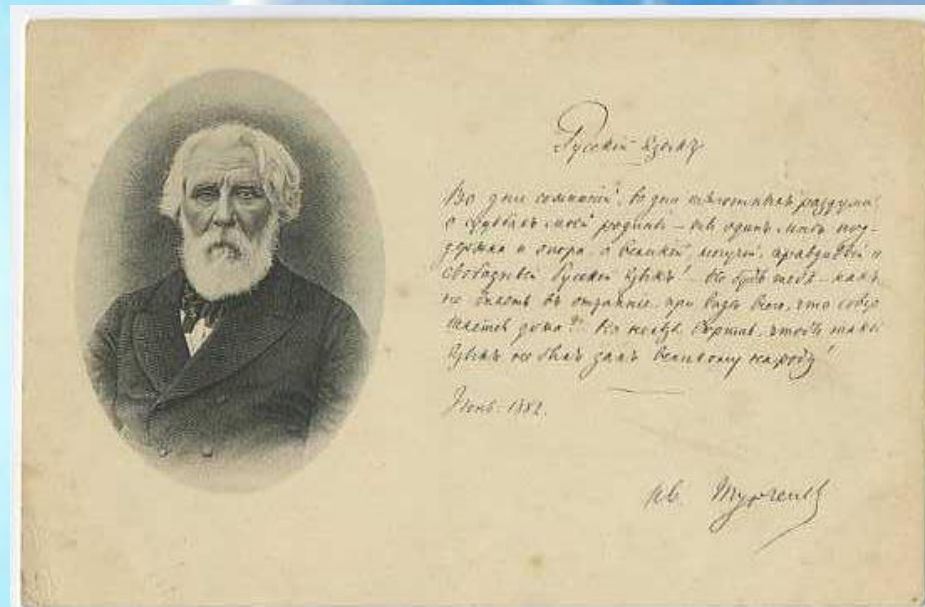 Русскій языкъ
Во дни сомнѣній, во дни тягостныхъ раздумій
о судьбахъ моей родины – ты одинъ мнѣ под-
держка и опора, о великій, могучій, правдивый и
свободный Русскій языкъ! Не будь тебя – какъ
не впасть въ отчаянье, при видѣ всего, что совер-
шается дома? Но нельзя вѣрить, чтобы такой
языкъ не былъ данъ великому народу!
Іюнь 1882.
Ив. Тургеневъ